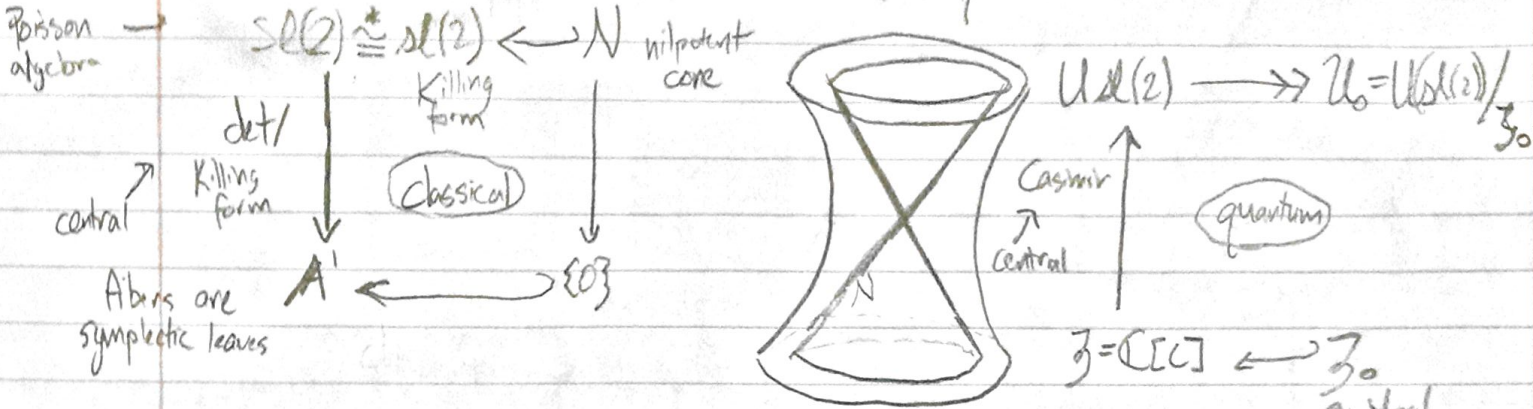 Poisson
algebra
sl(2)* ≅ sl(2) ↩ N nilpotent
cone
Killing
form
det/
Killing
form
central
classical
A¹ ↩ {0}
Fibers are
symplectic leaves
N
U sl(2) ↠ U₀ = U(sl(2))/𝔷₀
Casimir
central
quantum
𝔷 = ℂ[C] ↩ 𝔷₀